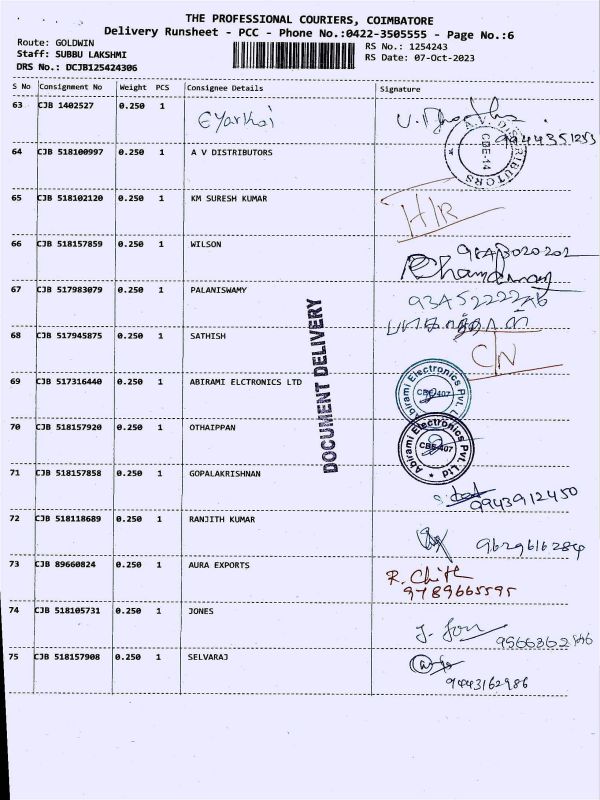 THE PROFESSIONAL COURIERS, COIMBATORE
Delivery Runsheet - PCC - Phone No.:0422-3505555 - Page No.:6
Route: GOLDWIN
Staff: SUBBU LAKSHMI
DRS No.: DCJB125424306
RS No.: 1254243
RS Date: 07-Oct-2023
S No Consignment No Weight PCS Consignee Details Signature
63 CJB 1402527 0.250 1
9944351253
64 CJB 518100997 0.250 1 A V DISTRIBUTORS
A.V. DISTRIBUTORS
CBE-14
65 CJB 518102120 0.250 1 KM SURESH KUMAR
H/R
66 CJB 518157859 0.250 1 WILSON
67 CJB 517983079 0.250 1 PALANISWAMY
68 CJB 517945875 0.250 1 SATHISH
DOCUMENT DELIVERY
69 CJB 517316440 0.250 1 ABIRAMI ELCTRONICS LTD
Abirami Electronics Pvt. Ltd
CBE 407
70 CJB 518157920 0.250 1 OTHAIPPAN
Abirami Electronics Pvt. Ltd
CBE 407
71 CJB 518157858 0.250 1 GOPALAKRISHNAN
9943912450
72 CJB 518118689 0.250 1 RANJITH KUMAR
9629616284
73 CJB 89660824 0.250 1 AURA EXPORTS
R. Chith
9789665595
74 CJB 518105731 0.250 1 JONES
75 CJB 518157908 0.250 1 SELVARAJ
9443162986